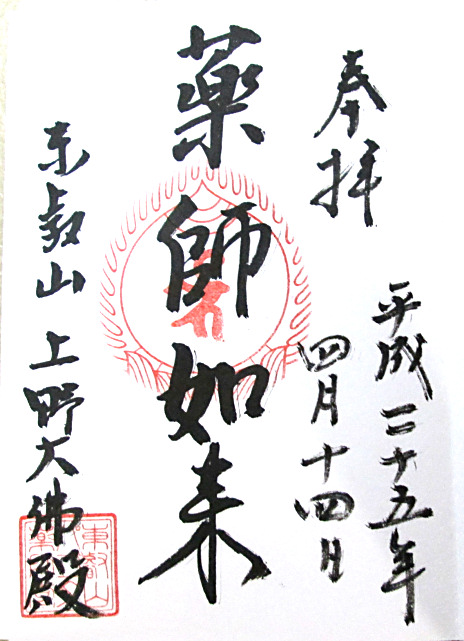 奉拝
平成二十五年
四月十四日
薬師如来
东叡山 上野大佛殿